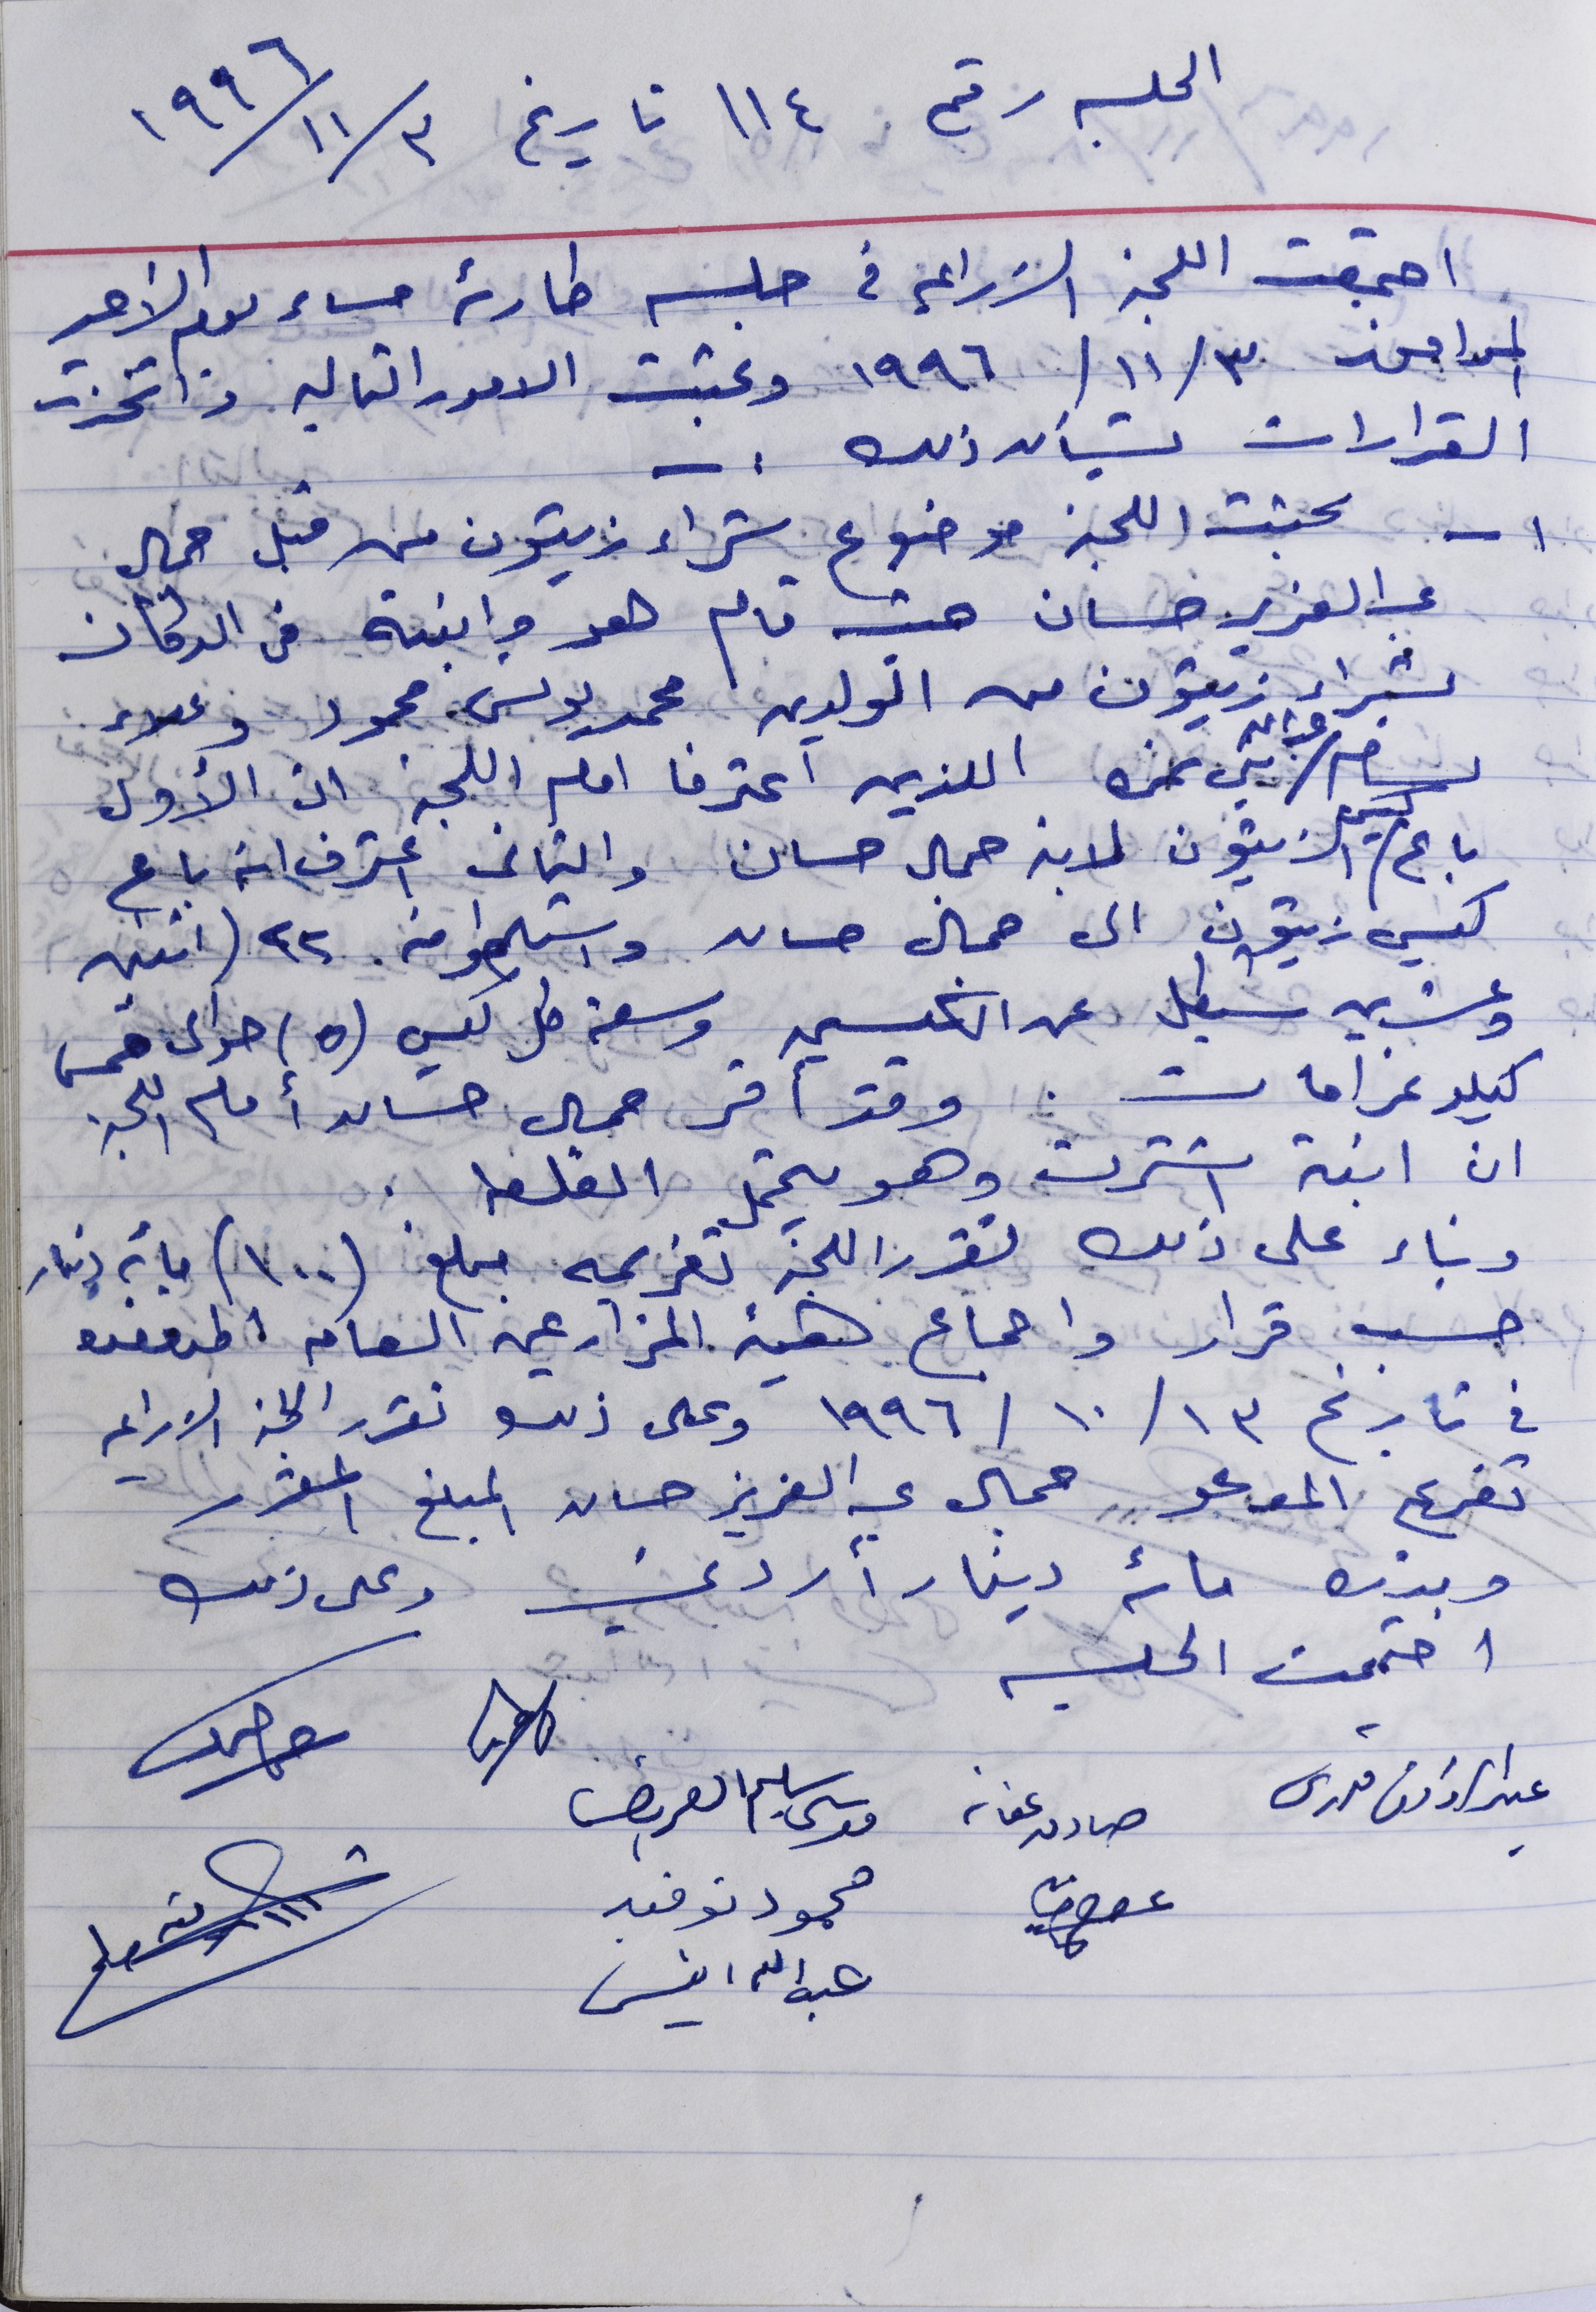 الجلسه رقم ١١٤ تاريخ ٣/١١/١٩٩٦
اجتمعت اللجنة الزراعية في جلسه طارئة مساء يوم الأحد
الموافق ٣/١١/١٩٩٦ وبحثت الامور التاليه واتخذت
القرارات بشأن ذلك :-
١- بحثت اللجنة موضوع شراء زيتون من قبل جمال
عبد العزيز حسان حيث قام هو وابنه في الدكان
بشراء زيتون من الولدين محمد يونس محمود وعلاء
اللذين اعترفا امام اللجنة ان الأول
باع كيس الزيتون لابنه جمال حسان والثاني اعترف انه باع
كيسي زيتون الى جمال حسان واستلموا منه ٢٢ (اثنين
وعشرين شيقل عن الكيسين وسعة كل كيس (٥) حوالي خمس
كيلو غرامات . وقد أقر جمال حسان أمام اللجنة
ان ابنه اشترى وهو يتحمل الغلط .
وبناء على ذلك تقرر اللجنة تغريمه مبلغ (١٠٠) مائة دينار
حسب قرار واجماع هيئة المزارعين العامه المنعقده
في تاريخ ١٣/١٠/١٩٩٦ وعلى ذلك تقرر اللجنة الزراعيه
تغريم المدعو جمال عبد العزيز حسان المبلغ المقرر
وقدره مائة دينار أردني وعلى ذلك
اختتمت الجلسه
عبد الرزاق قدري صادق عفانه موسى سليم العريض
محمود توفيق
عبد الله انيس